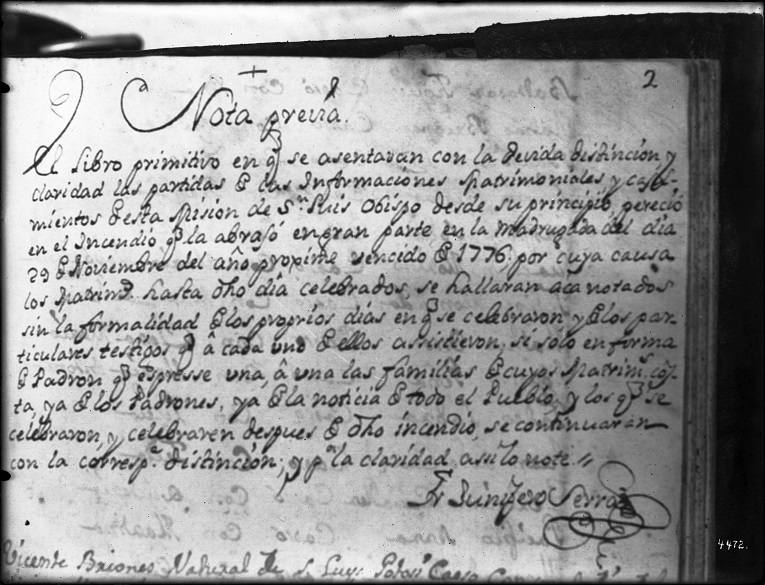 2
Nota previa.
El Libro primitivo en q̃ se asentavan con la devida distincion y
claridad las partidas de las Informaciones Matrimoniales y casa-
mientos de esta Mision de Sn. Luis Obispo desde su principio pereciò
en el Incendio q̃ la abrasó en gran parte en la madrugada del dia
29 de Noviembre del año proxime vencido de 1776, por cuya causa
los Matrims. hasta dho dia celebrados, se hallaran aca notados
sin la formalidad de los proprios dias en q̃ se celebraron y de los par-
ticulares testigos q̃ â cada uno de ellos assistieron, sí solo en forma
de Padron q̃ espresse una, â una las familias de cuyos Matrims. cõs-
ta, ya de los Padrones, ya de la noticia de todo el Pueblo, y los q̃ se
celebraron, y celebraren despues de dho incendio, se continuaràn
con la corresp.e distincion; y pa. la claridad assi lo note
Fr Junipero Serra
4472.
Vicente Briones Natural de S. Luys Potosi Caso